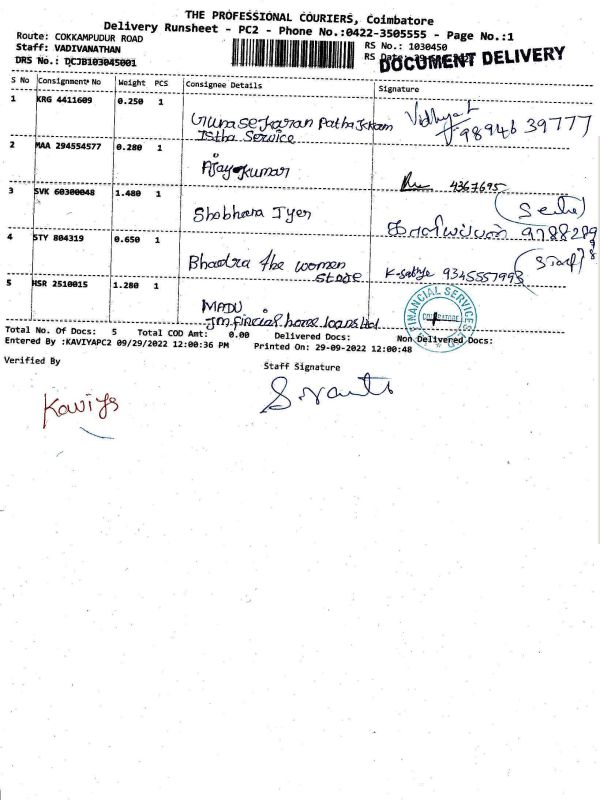 THE PROFESSIONAL COURIERS, Coimbatore
Delivery Runsheet - PC2 - Phone No.:0422-3505555 - Page No.:1
Route: COKKAMPUDUR ROAD
RS No.: 1030450
Staff: VADIVANATHAN
RS
DOCUMENT DELIVERY
DRS No.: DCJB103045001
S No Consignment No Weight PCS Consignee Details Signature
1 KRG 4411609 0.250 1
Gunasekaran Pathajekam Vidhya 98946 39777
Istha Service
2 MAA 294554577 0.280 1
Ajay kumar
4367695
3 SVK 60300048 1.480 1
Shobhana Iyer 9788289
4 STY 804319 0.650 1
Bhadra the women K-sathya 9345557993 Staff
store
5 HSR 2510015 1.280 1
MADU
Jm.fincial home loans Ltd
FINANCIAL SERVICES
COIMBATORE
Total No. Of Docs: 5 Total COD Amt: 0.00 Delivered Docs: Non Delivered Docs:
Entered By :KAVIYAPC2 09/29/2022 12:00:36 PM Printed On: 29-09-2022 12:00:48
Verified By
Staff Signature
Kaviya